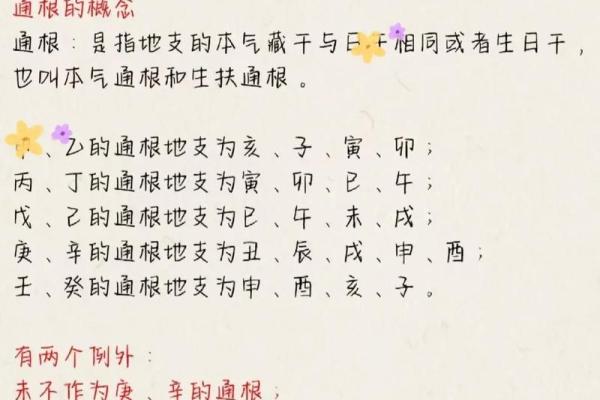 通根的概念
通根：是指地支的本气藏干与日干相同或者生日干，
也叫本气通根和生扶通根。
、乙的通根地支为亥、子、寅、卯；
丙、丁的通根地支为寅、卯、巳、午；
戊、己的通根地支为巳、午、未、戌；
庚、辛的通根地支为丑、辰、戌、申、酉；
壬、癸的通根地支为申、酉、亥、子。
有两个例外：
未不作为庚、辛的通根；